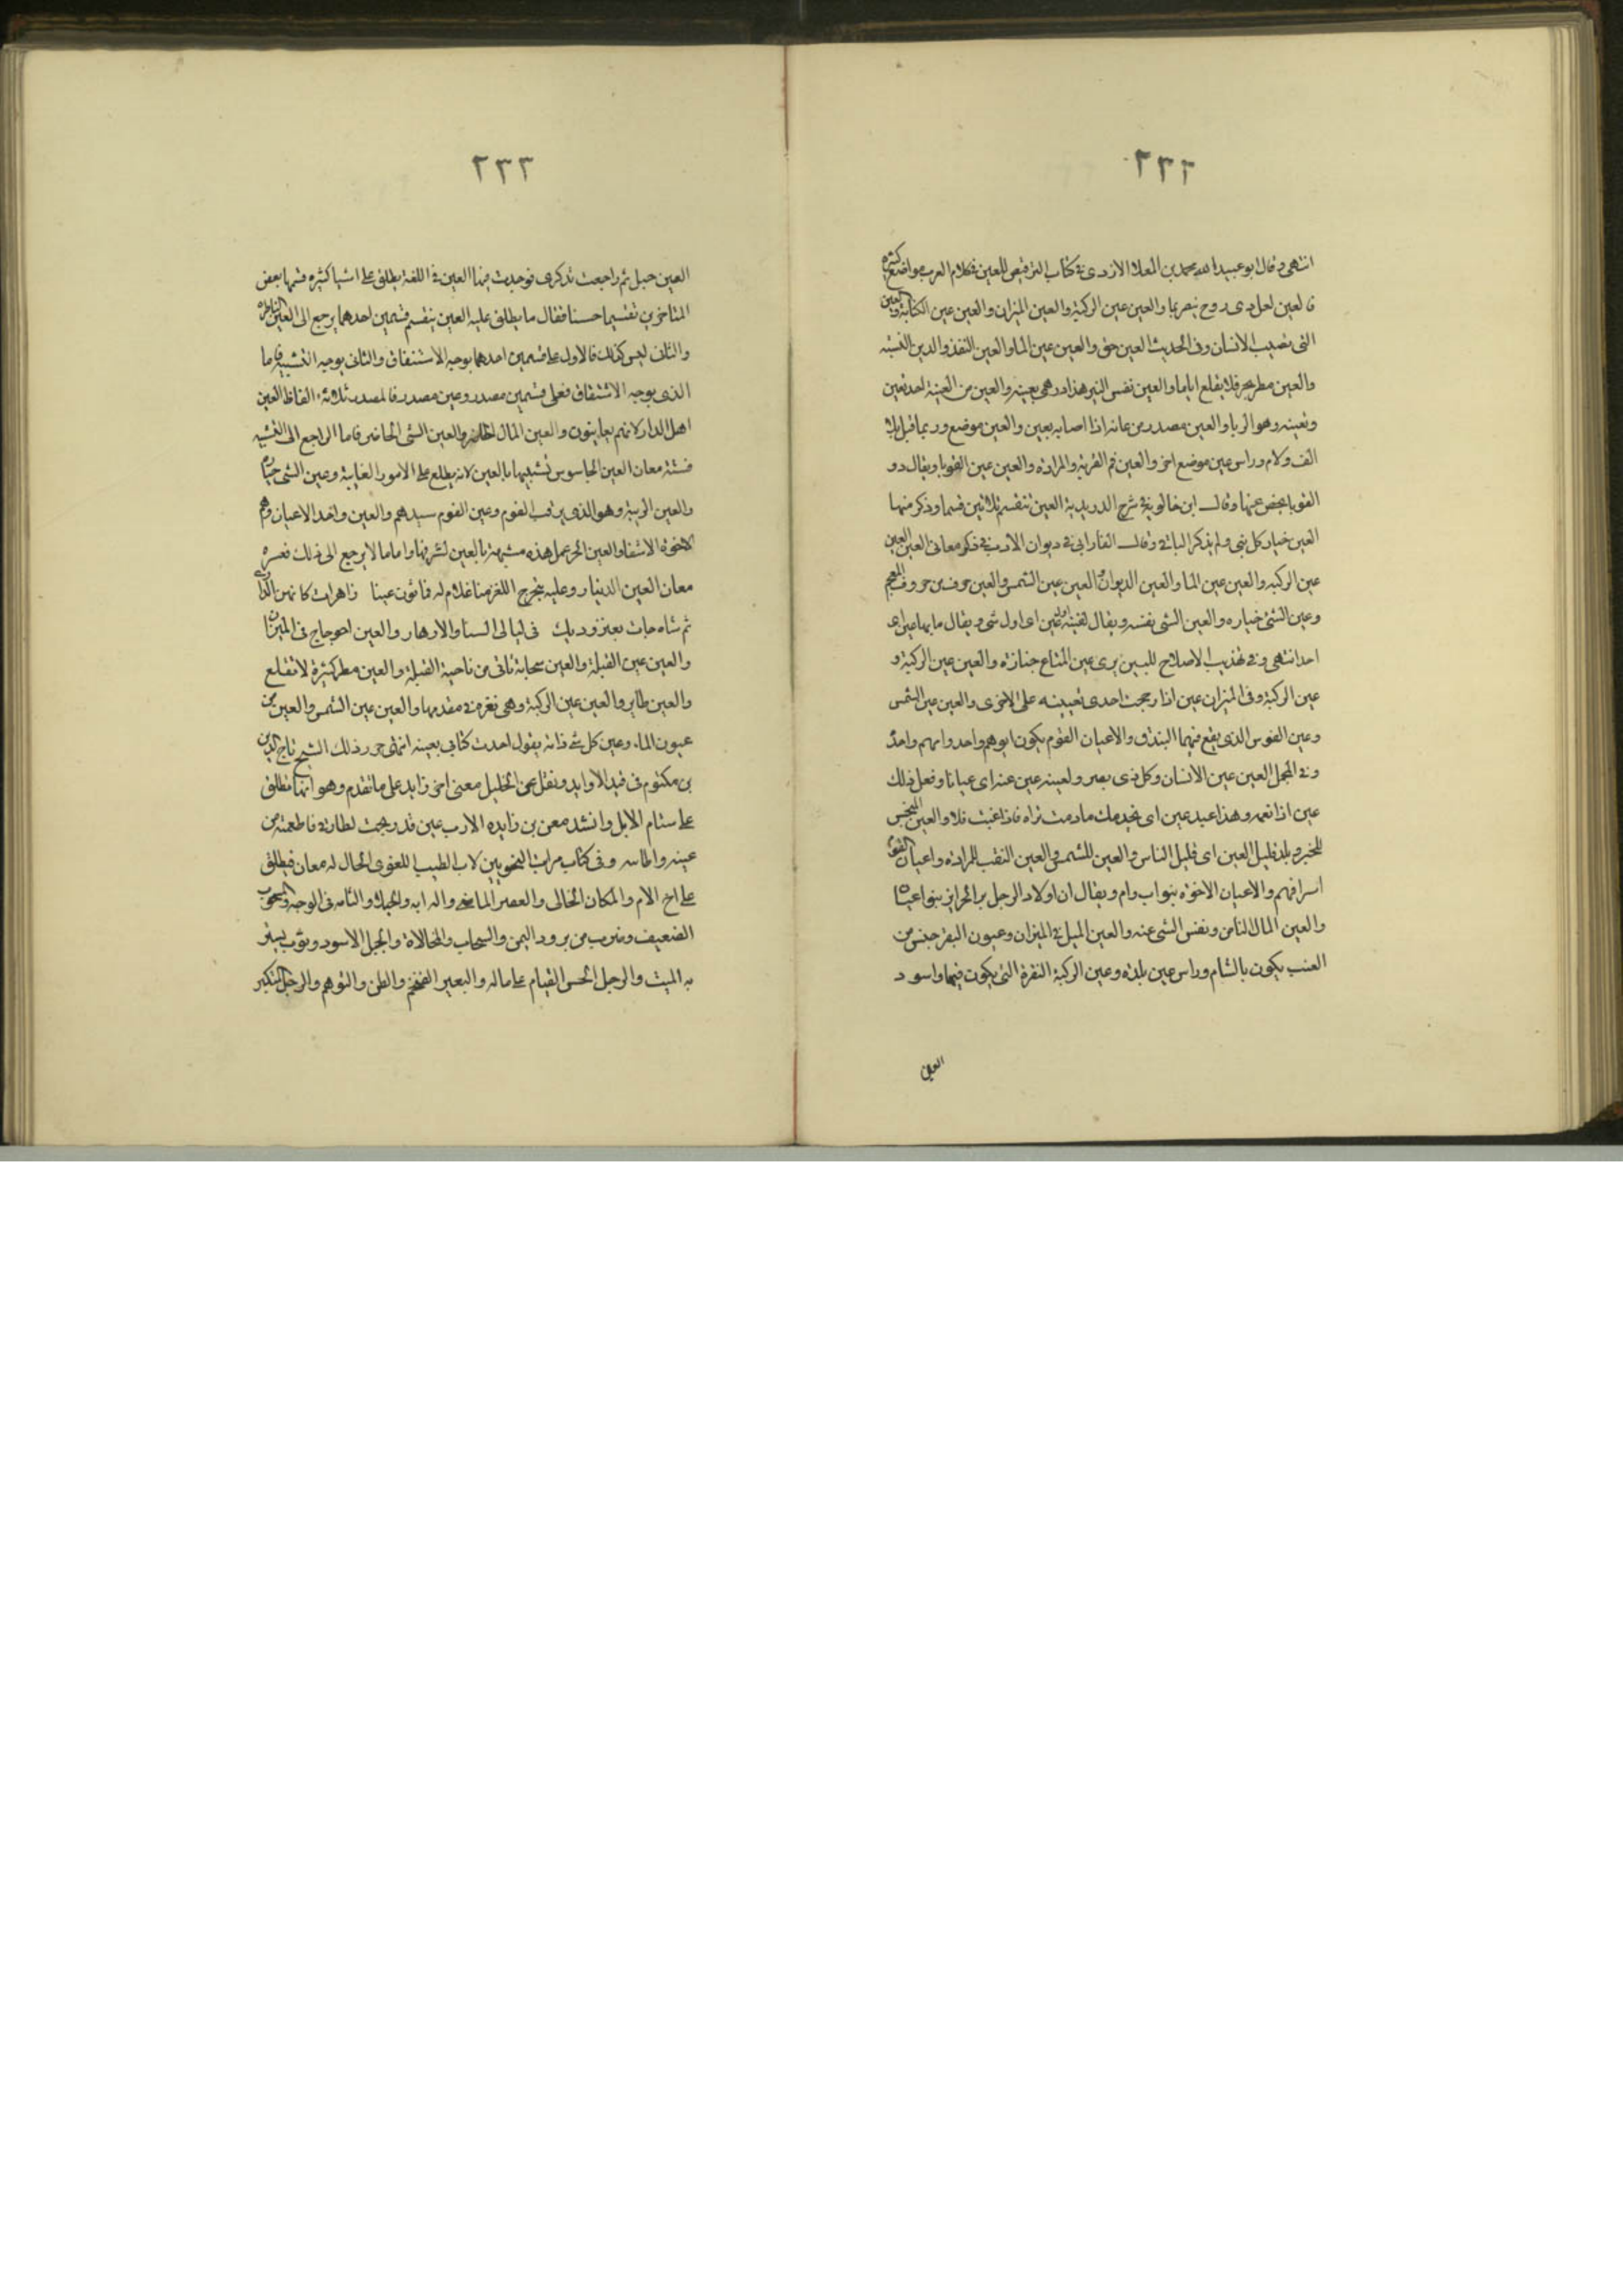 ٢٣٢
انتهى وقال ابو عبيد الله محمد بن المعلا الازدى فى كتاب الترقيص للعين فى كلام العرب مواضع كثيرة
فالعين لعل ذى روح يبصر بها والعين عين الركبة والعين الميزان والعين عين الكتابة والعين
التى تصيب الانسان وفى الحديث العين حق والعين عين الما والعين النقذ والدين النسيه
والعين مطر يجى فلا يقلع اياما والعين نفس الشى هذا درهمى بعينه والعين من العينة احد تعين
وتعينه وهو الربا والعين مصدر من عانه اذا اصابه بعين والعين موضع وربما قيل بلا
الف ولام وراس عين موضع اخر والعين فم القربة والمزادة والعين عين القوبا ويقال دو
القوبا بعض عنها وقال ابن خالويه فى شرح الدريدية العين تنقسم ثلاثين قسما وذكر منها
العين خيار كل شى ولم يذكر الباقى وقال الفارابى فى ديوان الادب فى ذكر معانى العين العين
عين الركبه والعين عين الما والعين الديوان والعين عين الشمس والعين حرف من حروف المعجم
وعين الشئ خياره والعين الشى نفسه ويقال لقيته اول عين اى اول شى ويقال ما بها عين اى
احد انتهى وفى تهذيب الاصلاح للتبريزى عين المتاع خياره والعين عين الركبة و
عين الركية وفى الميزان عين اذا رجحت احدى كفيتيه على الاخرى والعين عين الشمس
وعين القوس الذى يقع فيها البندق والاعيان القوم يكون ابوهم واحد وامهم واحدة
وفى المجمل العين عين الانسان وكل ذى بصر ولعينه عين عنه اى عيانا وفعل ذلك
عين اذا تعمد وهذا عبد عين اى يخدمك ما دمت تراه فاذا غبت فلا والعين المتجسس
للخبر وبلد قليل العين اى قليل الناس والعين للشمس والعين الثقب للمزادة واعيان القوم
اشرافهم والاعيان الاخوة بنو اب وام ويقال ان اولاد الرجل من الحراير بنو اعيان
والعين المال الناض ونفس الشى عينه والعين الميل فى الميزان وعيون البقر جنس من
العنب يكون بالشام وراس عين بلده وعين الركبة النقرة التى يكون فيها واسود
العين
٢٣٣
العين جبل ثم راجعت تذكرى فوجدت فيها العين فى اللغة يطلق على اشيا كثيره قسمها بعض
المتاخرين تقسيما حسنا فقال ما يطلق عليه العين ينقسم قسمين احدهما يرجع الى العين الناظرة
والثانى ليس كذلك فالاول على قسمين احدهما بوجه الاشتقاق والثانى بوجه التشبيه فاما
الذى بوجه الاشتقاق فعلى قسمين مصدر وعين مصدر فالمصدر ثلاثة الفاظ العين
اهل الدار لانهم يعاينون والعين المال الحاضر والعين الشى الحاضر فاما الراجع الى التشبيه
فستة معان العين الجاسوس تشبيها بالعين لانه يطلع على الامور الغايبة وعين الشى خياره
والعين الربيه وهو الذى يرقب القوم وعين القوم سيدهم والعين واحد الاعيان وهم
الاخوة الاشقا والعين الحر عمل هذه مشبهة بالعين لشرفها واما ما لا يرجع الى ذلك فعشره
معان العين الدينار وعليه يخرج اللغز منا غلام له فاثون عينا زاهرات كانهن الدرارى
ثم شاه جات بعنز وديك فى ليالى الشتا والازهار والعين اعوجاج فى الميزان
والعين عين القبلة والعين سحابة تاتى من ناحية القبلة والعين مطر كثيرة لا تقلع
والعين طاير والعين عين الركبة وهى نقرة فى مقدمها والعين عين الشمس والعين من
عيون الماء وعين كل شى ذاته يقول اخذت كتابى بعينه انتهى حرر ذلك الشيخ تاج الدين
بن مكتوم فى قيد الاوابد ونقل عن الخليل معنى اخر زايد على ما تقدم وهو انها تطلق
على سنام الابل وانشد معن بن زايده الادب عين قد ريحت لطارق فاطعمته من
عينه واطايبه وفى كتاب مراتب النحويين لابى الطيب اللغوى الخال له معان فيطلق
على اخ الام والمكان الخالى والعصر الماضى والدابه والخيلاء والشامه فى الوجه والمنخوب
الضعيف وضرب من برود اليمن والسحاب والمخالاة والجبل الاسود وثوب يستر
به الميت والرجل الحسن القيام على ماله والبعير الضخم والظن والتوهم والرجل المتكبر